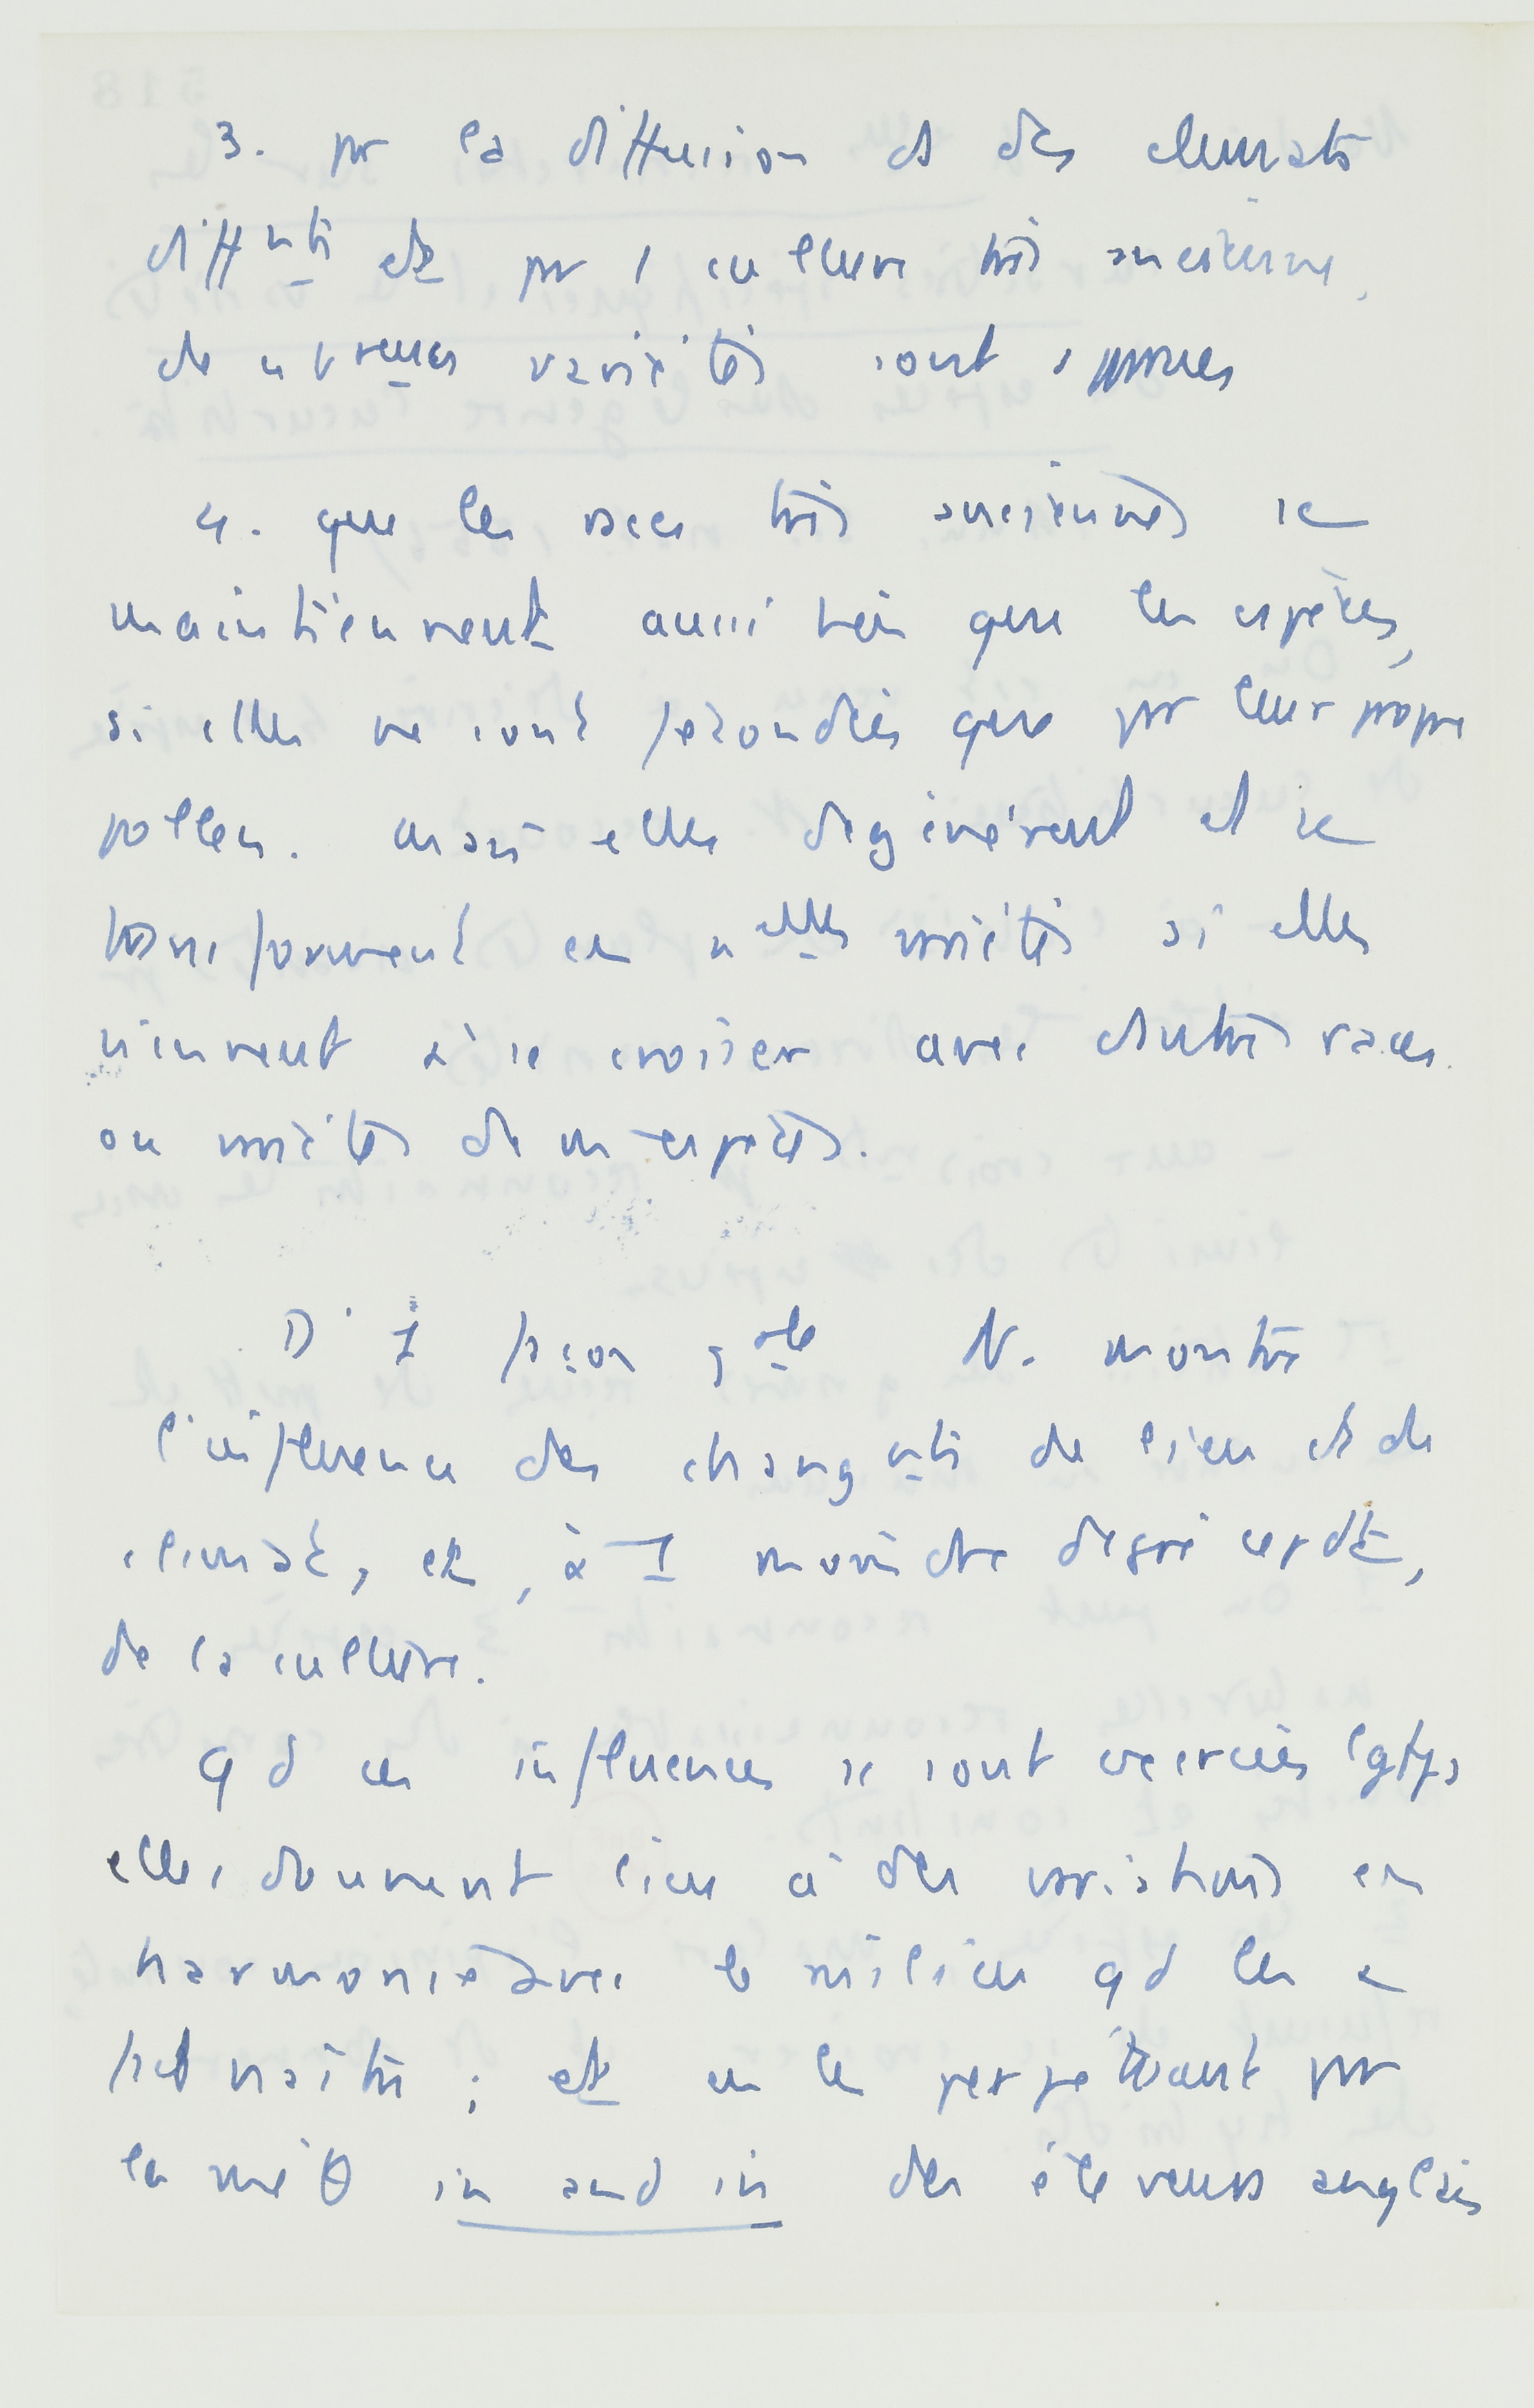 3. pr la diffusion ds des climats
diffnts et pr l culture très ancienne,
de nbreuses variétés sont apparues
4. que les races très anciennes se
maintiennent aussi bien que les espèces,
si elles ne sont fécondées que pr leur propre
pollen. mais elles dégénèrent et se
transforment en nlles variétés si elles
viennent à se croiser avec d'autres races
ou variétés de m espèces.
D' 1 façon gale N. montre
l'influence des changnts de lieu et de
climat, et, à 1 moindre degré cepdt,
de la culture.
qd ces influences se sont exercées lgtps
elles donnent lieu à des variations en
harmonie avec le milieu qd les a
fait naître ; et en les perpétuant pr
la méth in and in des éleveurs anglais